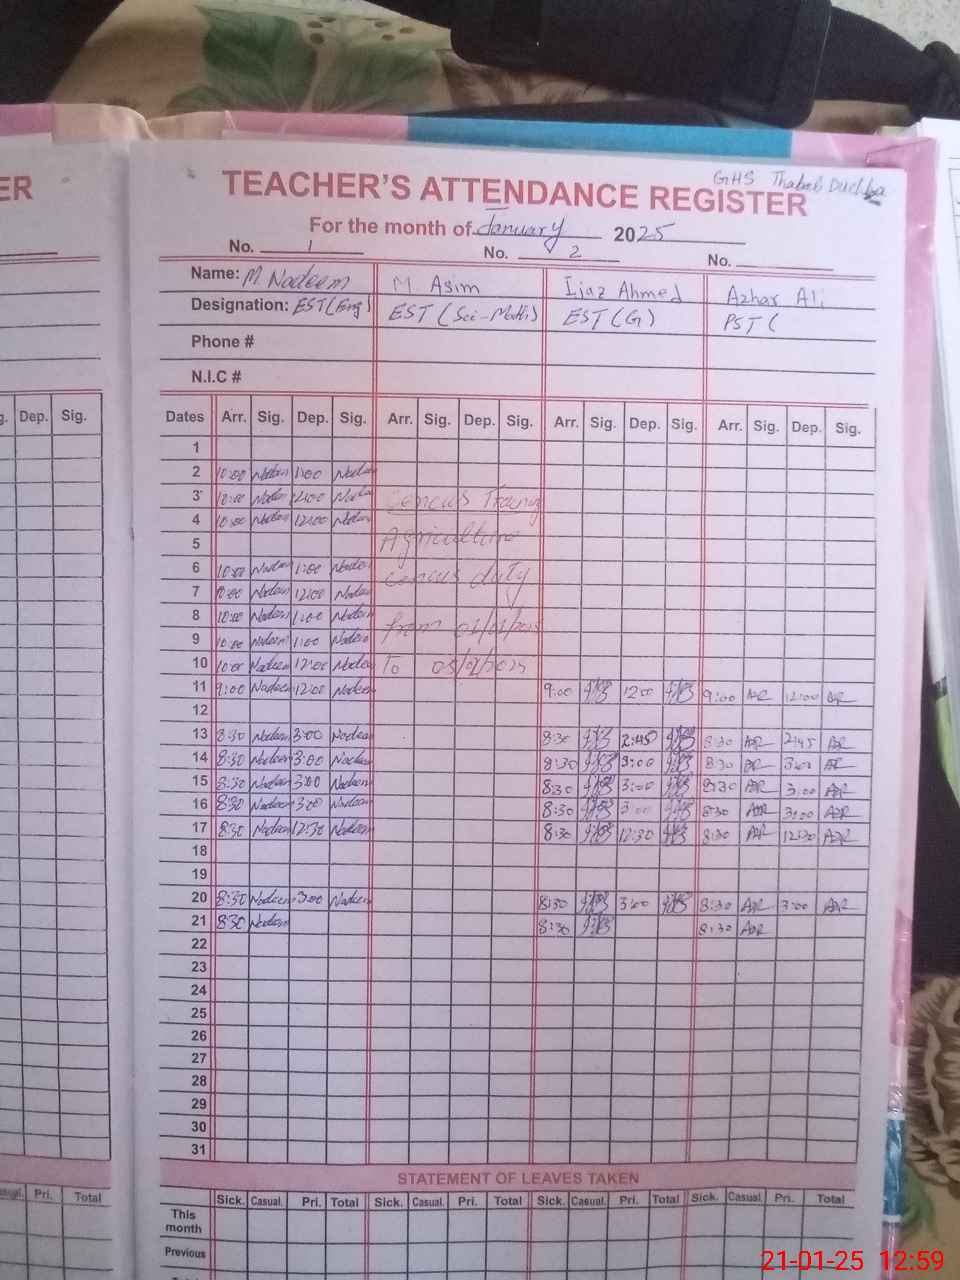 ER
TEACHER'S ATTENDANCE REGISTER
GHS Thabal
For the month of January 2025
No. 1 No. 2 No.
Name: M. Nadeem M Asim Ijaz Ahmed Azhar Ali
Designation: EST (Eng) EST (Sci-Math) EST (G) PST (
Phone #
N.I.C #
g. Dep. Sig.
Dates Arr. Sig. Dep. Sig. Arr. Sig. Dep. Sig. Arr. Sig. Dep. Sig. Arr. Sig. Dep. Sig.
1
2 10:00 Nadeem 1:00 Nadeem
3 10:00 Nadeem 12:00 Nadeem Cencus Traning
4 10:00 Nadeem 12:00 Nadeem
5 Agriculture
6 10:00 Nadeem 1:00 Nadeem cencus duty
7 10:00 Nadeem 12:00 Nadeem
8 10:00 Nadeem 1:00 Nadeem from
9 10:00 Nadeem 1:00 Nadeem
10 10:00 Nadeem 12:00 Nadeem To
11 9:00 Nadeem 12:00 Nadeem 9:00 12:00 9:00 12:00
12
13 8:30 Nadeem 3:00 Nadeem 8:30 2:45 8:30 2:45
14 8:30 Nadeem 3:00 Nadeem 8:30 3:00 8:30 3:00
15 8:30 Nadeem 3:00 Nadeem 8:30 3:00 8:30 3:00
16 8:30 Nadeem 3:00 Nadeem 8:30 3:00 8:30 3:00
17 8:30 Nadeem 12:30 Nadeem 8:30 12:30 8:30 12:30
18
19
20 8:30 Nadeem 3:00 Nadeem 8:30 3:00 8:30 3:00
21 8:30 Nadeem 8:30 8:30
22
23
24
25
26
27
28
29
30
31
STATEMENT OF LEAVES TAKEN
Pri. Total
Sick. Casual. Pri. Total Sick. Casual. Pri. Total Sick. Casual. Pri. Total Sick. Casual. Pri. Total
This month
Previous
21-01-25 12:59